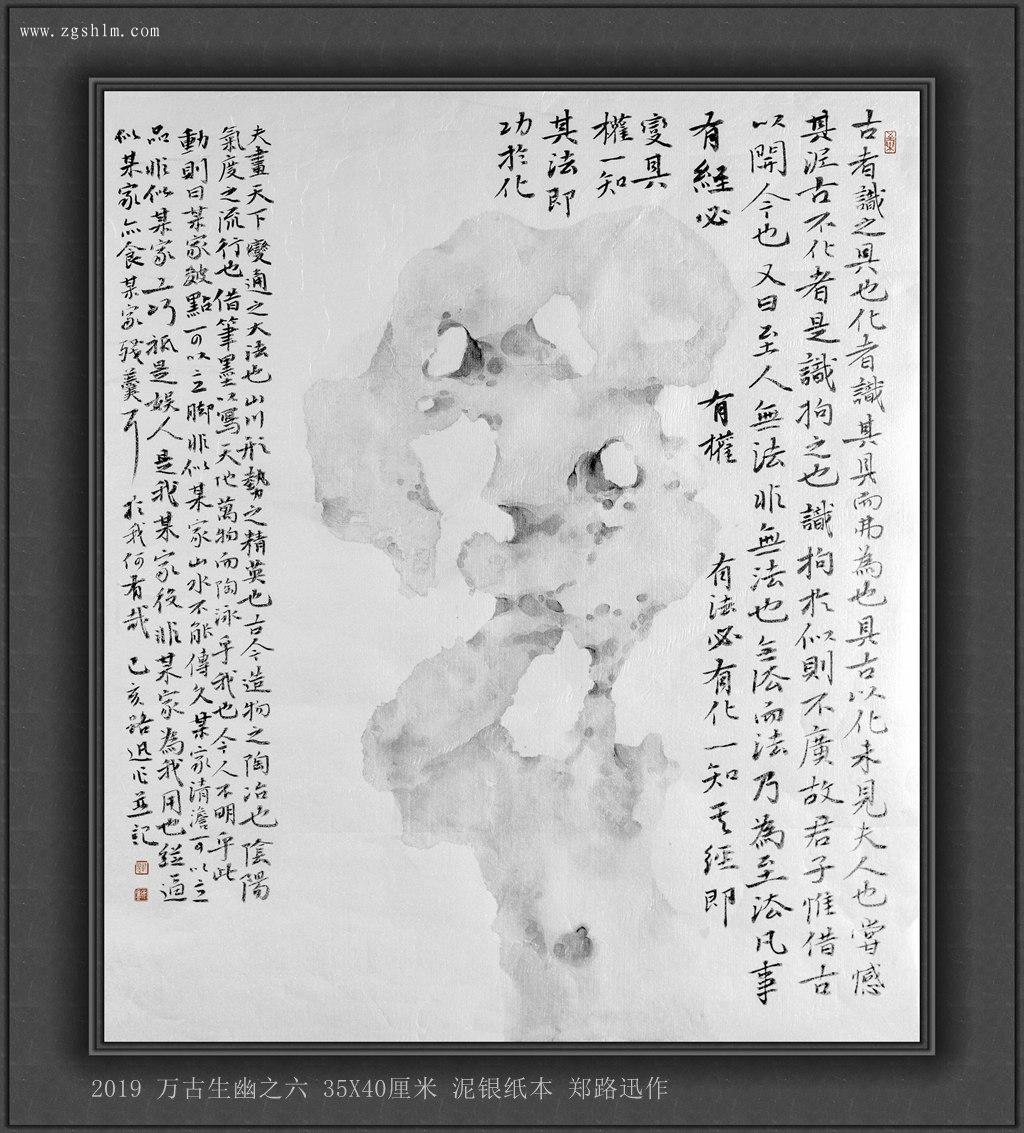 www.zgshlm.com
古者識之具也化者識其具而弗為也具古以化未見夫人也嘗憾
其泥古不化者是識拘之也識拘於似則不廣故君子惟借古
以開今也又曰至人無法非無法也無法而法乃為至法凡事
有經必
有權
有法必有化一知其經即
變其
權一知
其法即
功於化
夫畫天下變通之大法也山川形勢之精英也古今造物之陶冶也陰陽
氣度之流行也借筆墨以寫天地萬物而陶泳乎我也今人不明乎此
動則曰某家皴點可以立脚非似某家山水不能傳久某家清澹可以立
品非似某家工巧祇是娛人是我某家役非某家為我用也縱逼
似某家亦食某家殘羹耳於我何有哉己亥路迅作並記
2019 万古生幽之六 35X40厘米 泥银纸本 郑路迅作